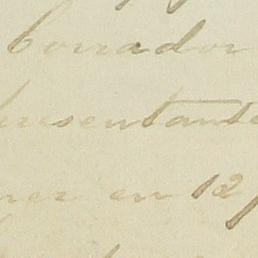 borrador
resentante
ner en 12